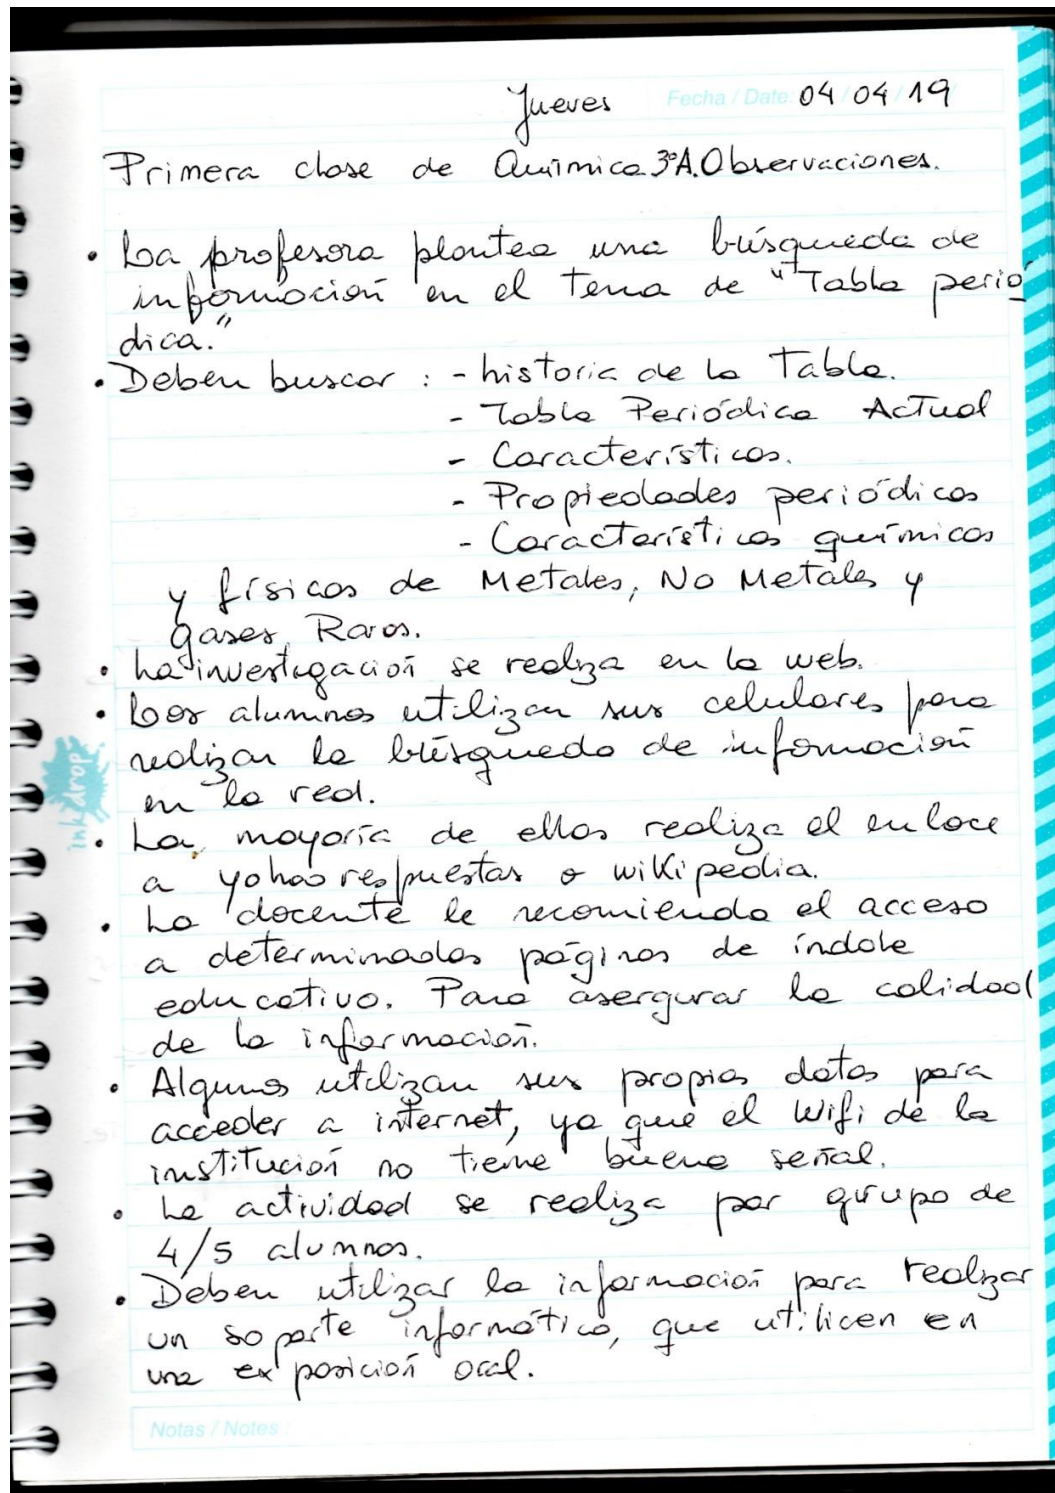 Jueves Fecha / Date: 04 / 04 / 19
Primera clase de Química 3ºA. Observaciones.
• La profesora plantea una búsqueda de
información en el Tema de "Tabla perió
dica."
• Deben buscar : - historia de la Tabla.
- Tabla Periódica Actual
- Características.
- Propiedades periódicas
- Características químicas
y físicas de Metales, No Metales y
gases Raros.
• La investigación se realiza en la web.
• Los alumnos utilizan sus celulares para
realizar la búsqueda de información
en la red.
• La mayoría de ellos realiza el enlace
a yahoo respuestas o wikipedia.
• La docente le recomienda el acceso
a determinadas páginas de índole
educativo. Para asergurar la calidad
de la información.
• Algunos utilizan sus propios datos para
acceder a internet, ya que el Wifi de la
institución no tiene buena señal.
• La actividad se realiza por grupo de
4/5 alumnos.
• Deben utilizar la información para realizar
un soporte informático, que utilicen en
una exposición oral.
Notas / Notes :
ink drop